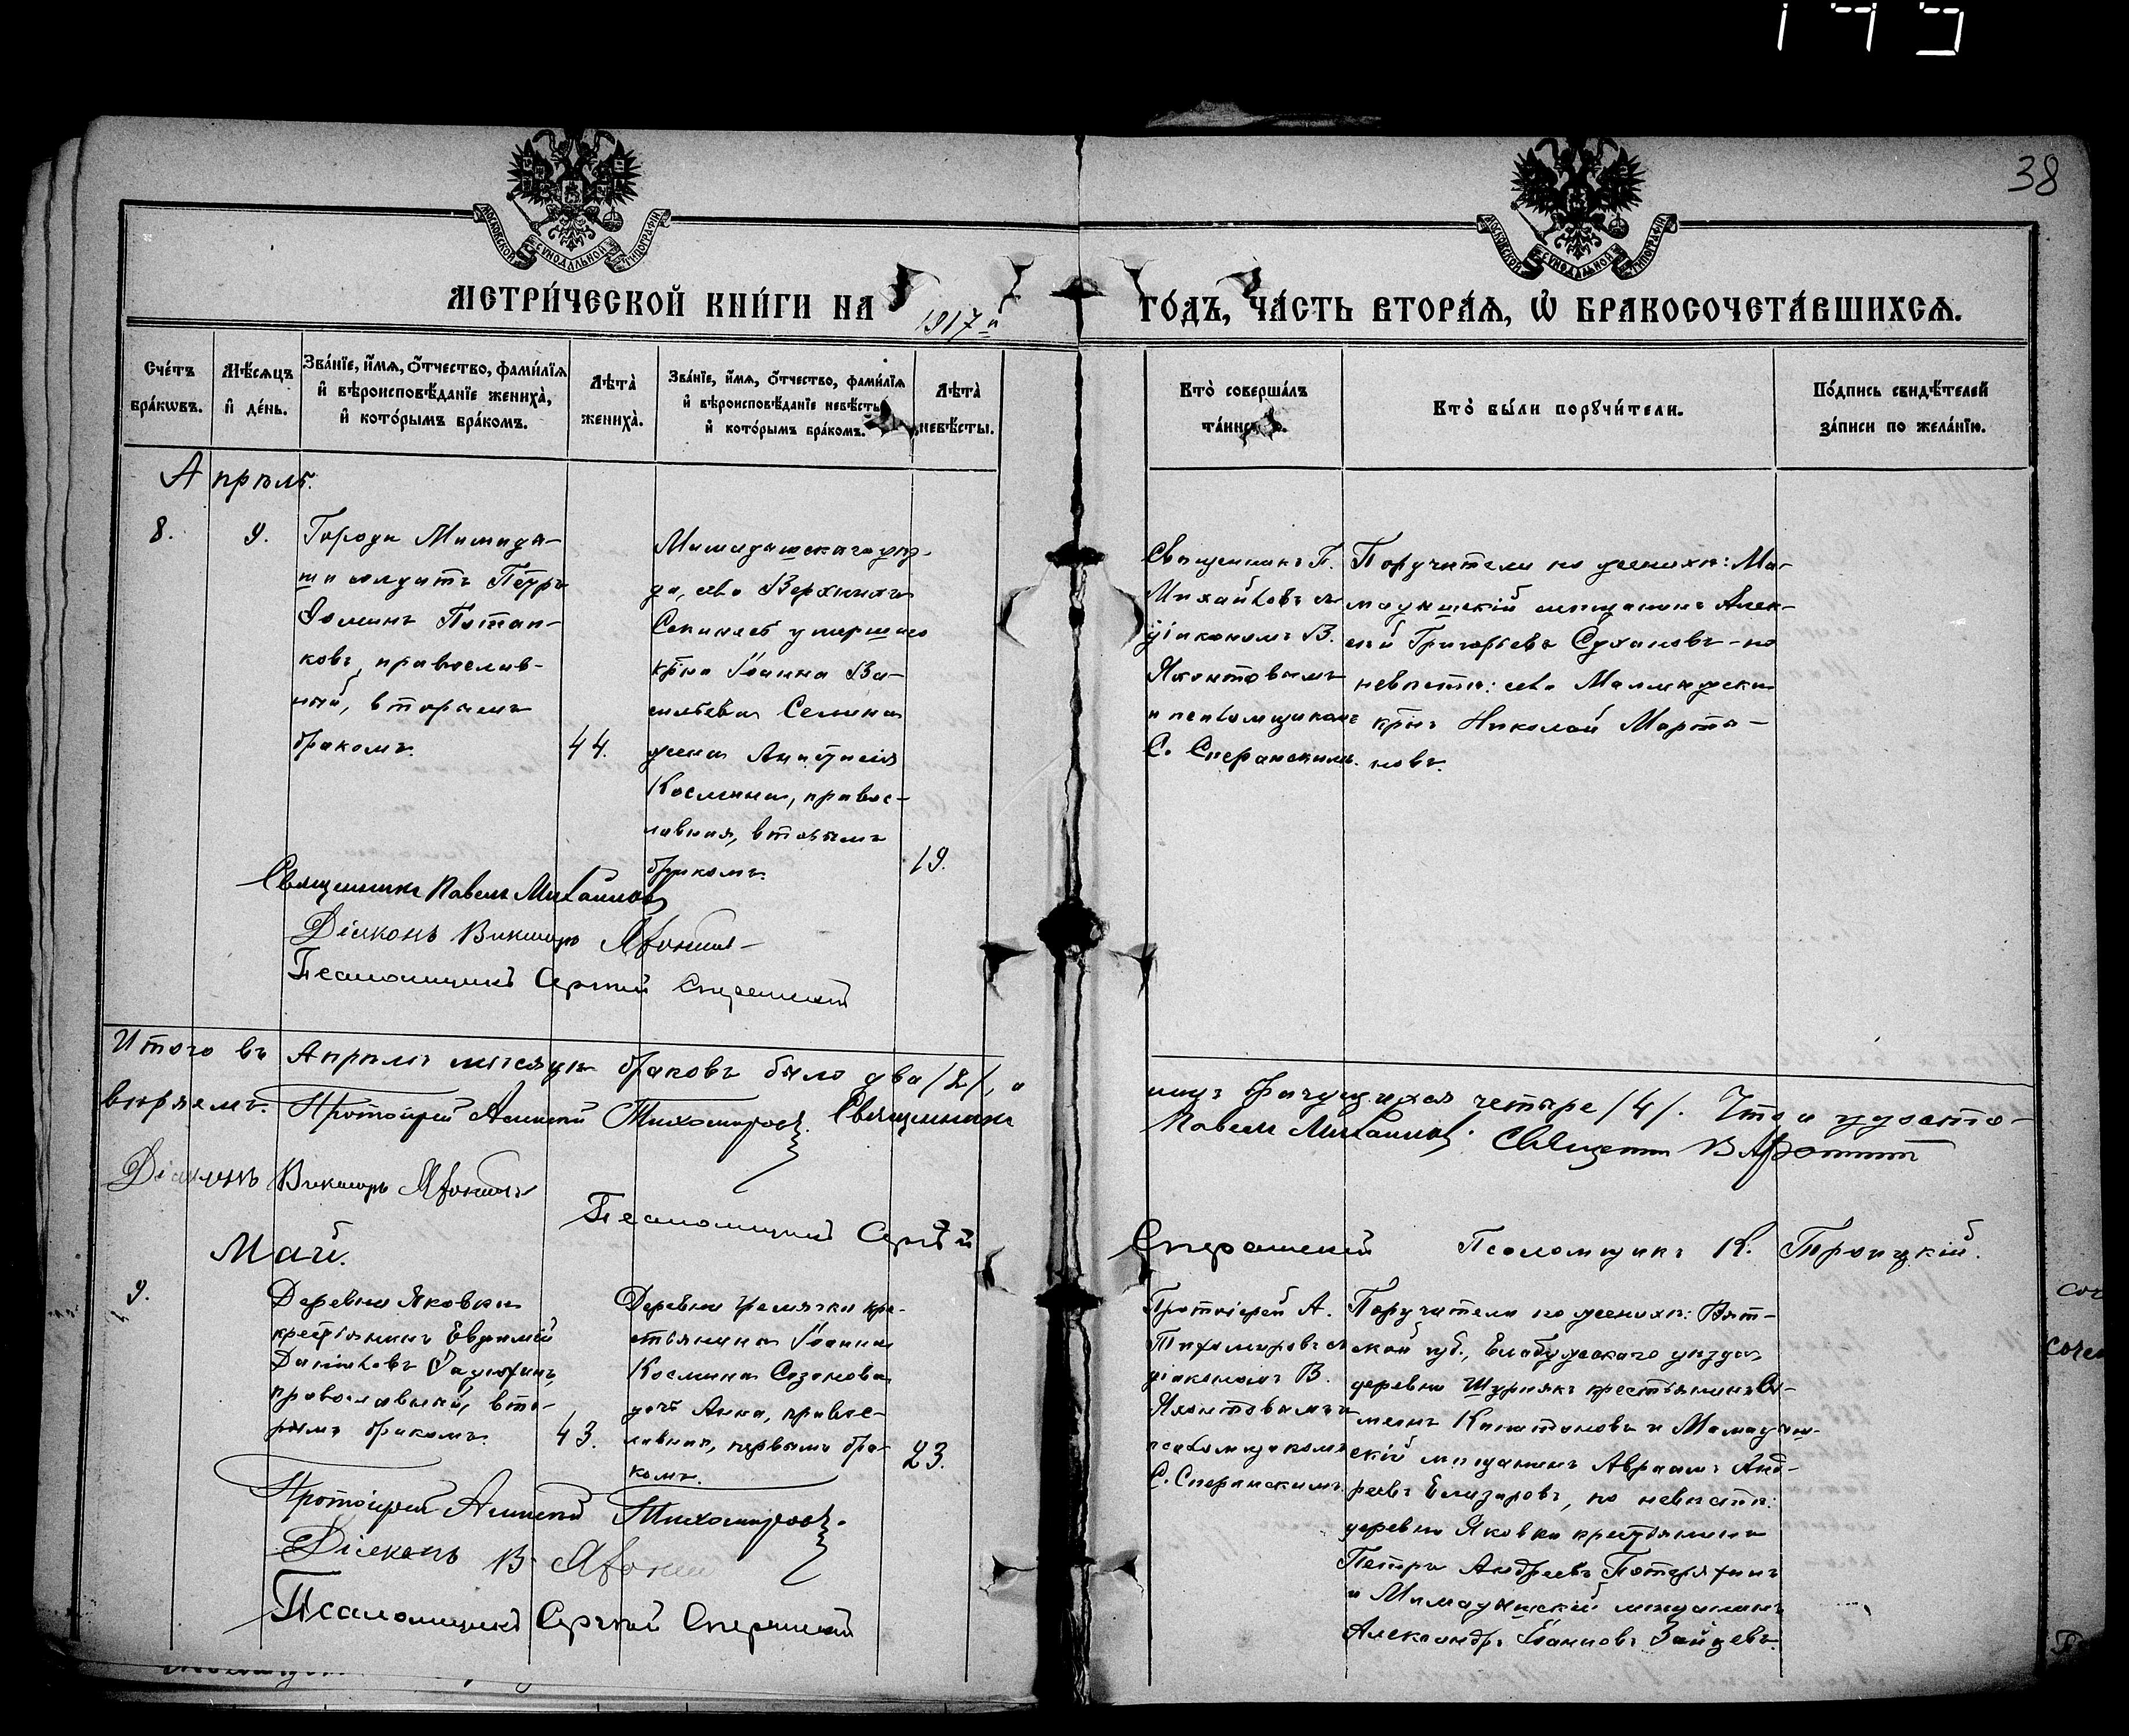 38
МОСКОВСКОЙ СѴНОДАЛЬНОЙ ТИПОГРАФІИ
МОСКОВСКОЙ СѴНОДАЛЬНОЙ ТИПОГРАФІИ
МЕТРИ́ЧЕСКОЙ КНИ́ГИ НА 1917й ГО́ДЪ, ЧА́СТЬ ВТОРА́Ѧ, Ѽ БРАКОСОЧЕТА́ВШИХСѦ.
Сче́тъ бра́кѡвъ.
Мѣ́сѧцъ и҆ де́нь.
Зва́нїе, и҆́мѧ, ѻ҆́тчество, фами́лїѧ и҆ вѣроисповѣ́данїе жениха̀, и҆ кото́рымъ бра́комъ.
Лѣта̀ жениха̀.
Зва́нїе, и҆́мѧ, ѻ҆́тчество, фами́лїѧ и҆ вѣроисповѣ́данїе невѣ́сты, и҆ кото́рымъ бра́комъ.
Лѣта̀ невѣ́сты.
Кто̀ соверша́лъ та́инство.
Кто̀ бы́ли порꙋчи́тели.
По́дпись свидѣ́телей за́писи по жела́нїю.
Апрѣль.
8.
9.
Города Мамады-
ша солдатъ Петръ
Ѳоминъ Потап-
ковъ, православ-
ный, вторымъ
бракомъ.
44.
Мамадышскаго уѣз-
да, села Верхнихъ
умершаго
кр-на Іоанна Ва-
сильева Семина
жена Анастасія
Космина, правос-
лавная, вторымъ
бракомъ.
19.
Священникъ П.
Михайловъ съ
діакономъ В.
Яхонтовымъ
и псаломщикомъ
С. Сперанскимъ.
Поручители по женихѣ: Ма-
мадышскій мещанинъ Алек-
сѣй Григорьевъ Сухановъ - по
невѣстѣ: села
кр-нъ Николай Марты-
новъ.
Священникъ Павелъ Михайловъ
Діаконъ Викторъ Яхонтовъ
Псаломщикъ Сергій Сперанскій
Итого въ Апрѣлѣ мѣсяцѣ браковъ было два /2/, а
лицъ брачущихся четыре /4/. Что и удосто-
вѣряемъ. Протоіерей Алексій Тихомировъ. Священникъ
Павелъ Михайловъ. Священникъ
Діаконъ Викторъ Яхонтовъ
Псаломщикъ Сергѣй
Сперанскій Псаломщикъ К. Троицкій.
Май.
9.
Деревни Яковки
крестьянинъ Евфимій
Даниловъ
православный, вто-
рымъ бракомъ.
43.
Деревни Гремячки кре-
стьянина Іоанна
Космина Сазонова
дочь Анна, правос-
лавная, первымъ бра-
комъ.
23.
Протоіерей А.
Тихомировъ съ
діакономъ В.
Яхонтовымъ и
псаломщикомъ
С. Сперанскимъ.
Поручители по женихѣ: Вят-
ской губ., Елабужскаго уѣзда,
деревни Шурнякъ крестьянинъ Се-
менъ Капитоновъ и Мамадыш-
скій мещанинъ Авраамъ Анд-
реевъ Елизаровъ, по невѣстѣ:
деревни Яковки крестьянинъ
Петръ Андреевъ Потеряхинъ
и Мамадышскій мещанинъ
Александръ Іоанновъ Зайцевъ.
Протоіерей Алексій Тихомировъ.
Діаконъ В. Яхонтовъ
Псаломщикъ Сергій Сперанскій